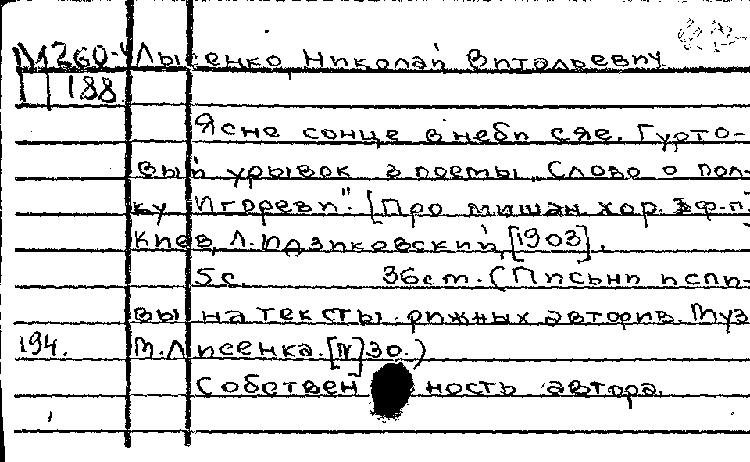 М 260-4 Лысенко, Николай Витальевич
I 188
Ясне сонце в неби сяе. Гурто-
вый урывок з поемы „Слово о пол-
ку Игореви". [Про мишан. хор. з ф-п.]
Киев, Л. Идзиковский, [1903].
5 с. 36 ст. (Письни и спи-
вы на тексты рижных авторив. Муз.
194. М. Лисенка. [IV] 30.)
Собственность автора.